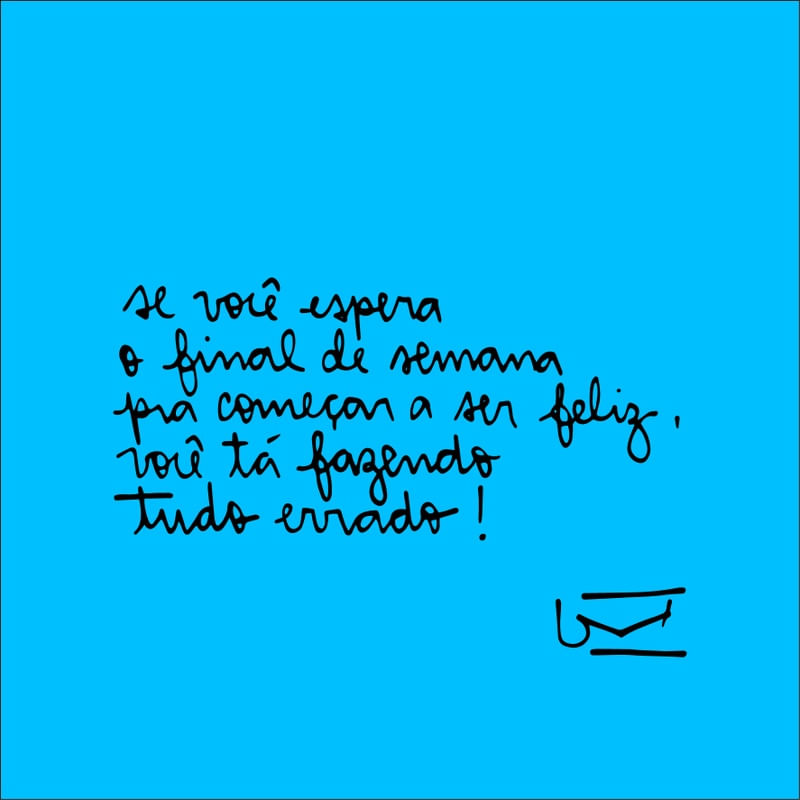 se você espera
o final de semana
pra começar a ser feliz,
você tá fazendo
tudo errado!